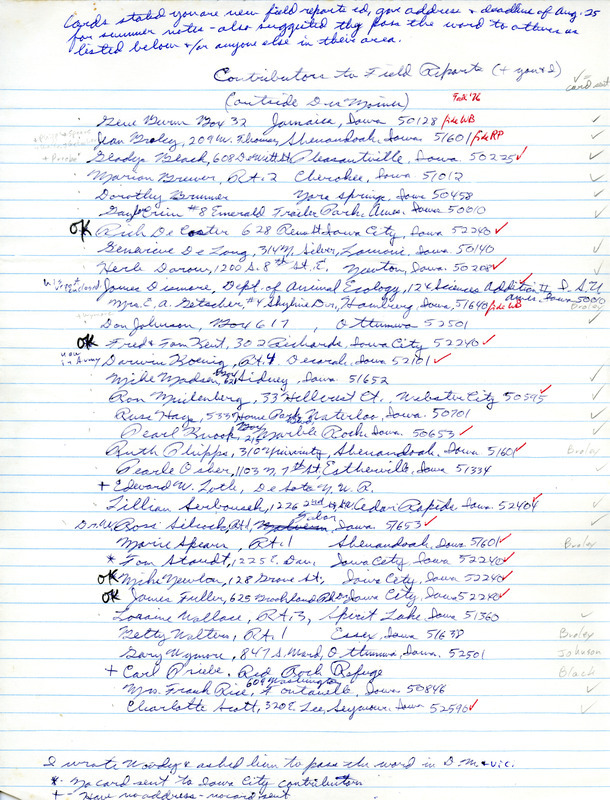 Cards stated you are new field reports ed, gave address & deadline of Aug. 25
for summer notes - also suggested they pass the word to others as
listed below &/or anyone else in their area.
Contributors to Field Reports (+ you & I)
✓ = card sent
(outside Des Moines) Fall '76
Box 32 Jamaica, Iowa 50128 file WB ✓
Jean Braley, 209 W. Thomas, Shenandoah, Iowa 51601 file RP ✓
Gladys Black, 608 DeWitt St. Pleasantville, Iowa. 50225 ✓
Marian Brewer, Rt. 2 Cherokee, Iowa 51012 ✓
Dorothy Brunner Nora Springs, Iowa 50458
#8 Emerald Trailer Park, Ames, Iowa 50010
OK Rich DeCoster 628 Reno St Iowa City, Iowa. 52240 ✓
Genevieve DeLong, 314 N. Silver, Lamoni, Iowa 50140 ✓
Herb Dorow, 1200 S. 8th St. E. Newton, Iowa. 50208 ✓
James Dinsmore, Dept. of Animal Ecology, 124 Sciences Addition II I.S.U.
Ames, Iowa 50010
Mrs. E. A. Getscher, #4 Skyline Dr., Hamburg, Iowa, 51640 file WB Braley
Don Johnson, Box 617, Ottumwa 52501
OK Fred & Tom Kent, 302 Richards, Iowa City 52240 ✓
now in Army Darwin Koenig, Rt. 4 Decorah, Iowa 52101 ✓
Mike Madsen, Sidney, Iowa. 51652
Ron Muilenberg, 33 Hillcrest Ct. Webster City 50595 ✓
Russ Hays, 533 Home Park Blvd. Waterloo, Iowa. 50701 ✓
Pearl Knoop, Box 215 Marble Rock, Iowa. 50653 ✓
Ruth Phipps, 310 University, Shenandoah, Iowa 51601 ✓ Braley
Pearle Osher, 1103 N. 7th St, Estherville, Iowa 51334 ✓
+ Edward W. Loth, DeSoto N.W.R.
Lillian Serbousek, 1226 2nd St. SW Cedar Rapids, Iowa. 52404 ✓
Ross Silcock, Rt. 1, Malvern, Tabor, Iowa, 51653 ✓
Marie Spears, Rt. 1 Shenandoah, Iowa 51601 ✓ Braley
* Tom Staudt, 1225 E. Dav. Iowa City, Iowa 52240 ✓
OK Mike Newlon, 128 Grove St, Iowa City, Iowa 52240 ✓
OK James Fuller, 625 Brookland Pk Dr. Iowa City, Iowa 52240 ✓
Loraine Wallace, Rt. 3, Spirit Lake, Iowa 51360 ✓
Betty Walters, Rt. 1 Essex, Iowa 51638 Braley
Gary Wymore, 847 S. Ward, Ottumwa, Iowa. 52501 Johnson
+ Carl Priebe, Red Rock Refuge Black
Mrs. Frank Rice, 609 Washington Fontanelle, Iowa. 50846 ✓
Charlotte Scott, 320 E. Lee, Seymour, Iowa 52590 ✓
I wrote Woody & asked him to pass the word in D.M. & vic.
* - No card sent to Iowa City contributors
+ - Have no address - no card sent